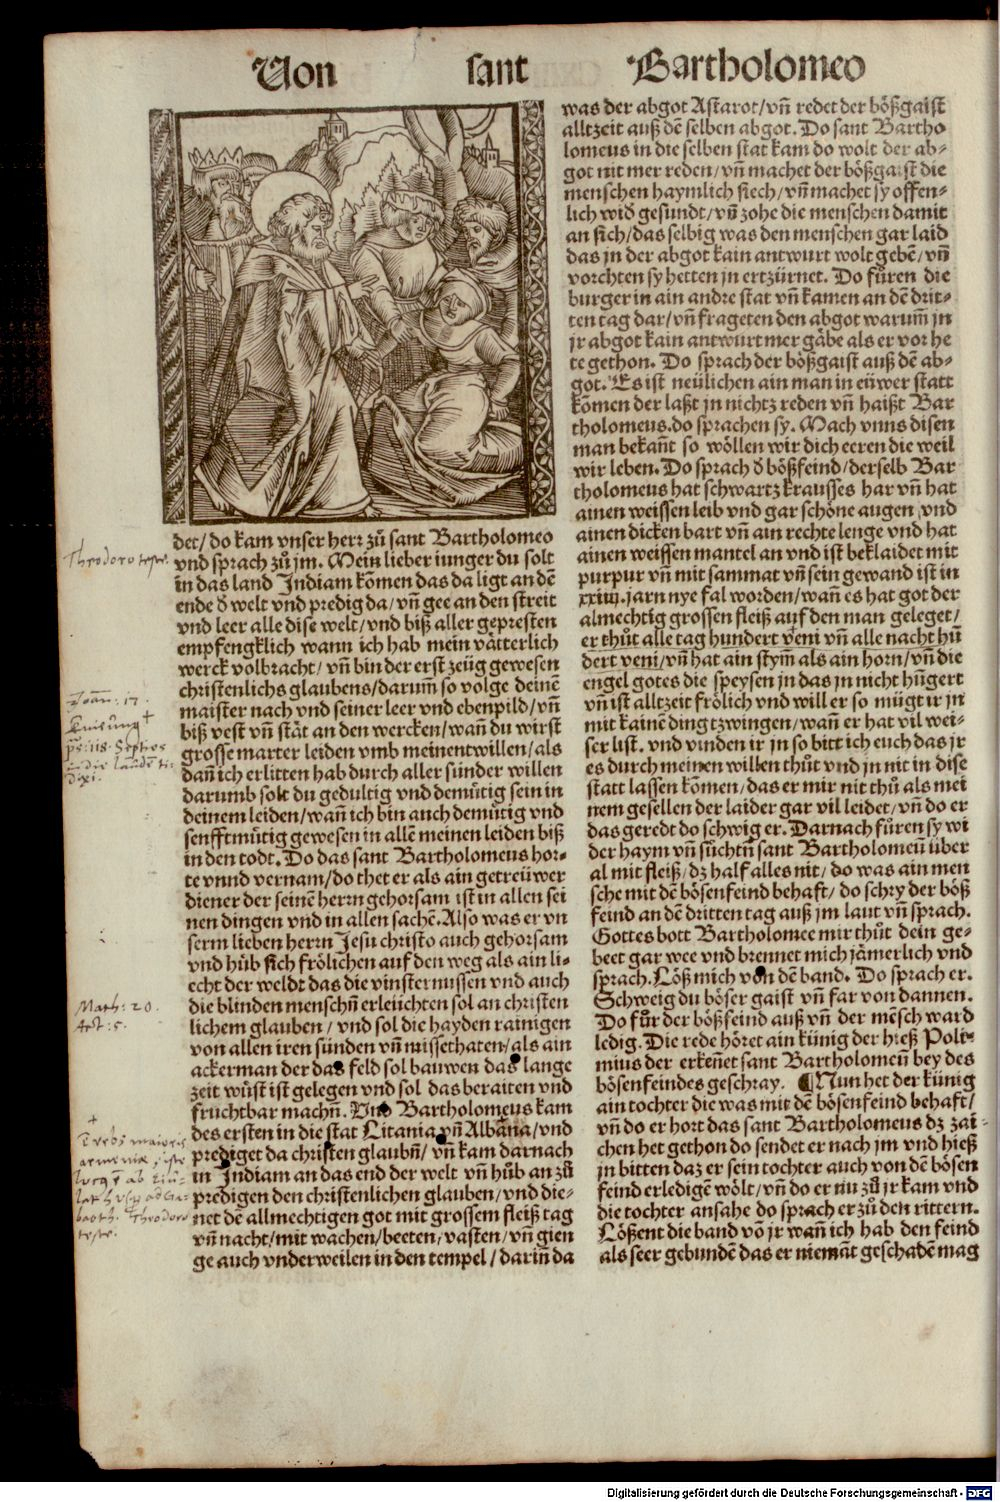 Von sant Bartholomeo
det/ do kam vnser herr zů sant Bartholomeo
vnd sprach zů jm. Mein lieber iunger du solt
in das land Indiam kõmen das da ligt an dẽ
ende d̕ welt vnd predig da/ vñ gee an den streit
vnd leer alle dise welt/ vnd biß aller gepresten
empfengklich wann ich hab mein våtterlich
werck volbracht/ vñ bin der erst zeüg gewesen
christenlichs glaubens/ darum̃ so volge deinẽ
maister nach vnd seiner leer vnd ebenpild/ vñ
biß vest vñ ståt an den wercken/ wañ du wirst
grosse marter leiden vmb meinentwillen/ als
dañ ich erlitten hab durch aller sünder willen
darumb solt du gedultig vnd demůtig sein in
deinem leiden/ wañ ich bin auch demütig vnd
senfftmůtig gewesen in allẽ meinen leiden biß
in den todt. Do das sant Bartholomeus hor-
te vnnd vernam/ do thet er als ain getreüwer
diener der seinẽ herrn gehorsam ist in allen sei
nen dingen vnd in allen sachẽ. Also was er vn
serm lieben herrn Jesu christo auch gehorsam
vnd hůb sich frölichen auf den weg als ain li-
echt der weldt das die vinsternussen vnd auch
die blinden menschñ erleüchten sol an christen
lichem glauben/ vnd sol die hayden rainigen
von allen iren sünden vñ missethaten/ als ain
ackerman der das feld sol bauwen das lange
zeit wůst ist gelegen vnd sol das beraiten vnd
fruchtbar machñ. Vnd Bartholomeus kam
des ersten in die stat Litania vñ Albãna/ vnd
prediget da christen glaubñ/ vñ kam darnach
in Indiam an das end der welt vñ hůb an zů
predigen den christenlichen glauben/ vnd die-
net dẽ allmechtigen got mit grossem fleiß tag
vñ nacht/ mit wachen/ beeten/ vasten/ vñ gien
ge auch vnderweilen in den tempel/ dariñ da
was der abgot Astarot/ vñ redet der bößgaist
alltzeit auß dẽ selben abgot. Do sant Bartho
lomeus in die selben stat kam do wolt der ab-
got nit mer reden/ vñ machet der bößgaist die
menschen haymlich siech/ vñ machet sy offen-
lich wid̕ gesundt/ vñ zohe die menschen damit
an sich/ das selbig was den menschen gar laid
das jn der abgot kain antwurt wolt gebẽ/ vñ
vorchten sy hetten jn ertzürnet. Do fůren die
burger in ain andre stat vñ kamen an dẽ drit-
ten tag dar/ vñ frageten den abgot warum̃ jn
jr abgot kain antwurt mer gåbe als er vor he
te gethon. Do sprach der bößgaist auß dẽ ab-
got. Es ist neülichen ain man in eüwer statt
kõmen der laßt jn nichtz reden vñ haißt Bar
tholomeus. do sprachen sy. Mach vnns disen
man bekañt so wöllen wir dich eeren die weil
wir leben. Do sprach d̕ bößfeind/ derselb Bar
tholomeus hat schwartz krausses har vñ hat
ainen weissen leib vnd gar schöne augen vnd
ainen dicken bart vñ ain rechte lenge vnd hat
ainen weissen mantel an vnd ist beklaidet mit
purpur vñ mit sammat vñ sein gewand ist in
xxiiij. jarn nye fal worden/ wañ es hat got der
almechtig grossen fleiß auf den man geleget/
er thůt alle tag hundert veni vñ alle nacht hũ
dert veni/ vñ hat ain stym̃ als ain horn/ vñ die
engel gotes die speysen jn das jn nicht hũgert
vñ ist alltzeit frölich vnd will er so mügt ir jn
mit kainẽ ding tzwingen/ wañ er hat vil wei-
ser list. vnd vinden ir jn so bitt ich euch das jr
es durch meinen willen thůt vnd jn nit in dise
statt lassen kõmen/ das er mir nit thů als mei
nem gesellen der laider gar vil leidet/ vñ do er
das geredt do schwig er. Darnach fůren sy wi
der haym vñ sůchtñ sant Bartholomeũ über
al mit fleiß/ dz half alles nit/ do was ain men
sche mit dẽ bösenfeind behaft/ do schry der böß
feind an dẽ dritten tag auß jm laut vñ sprach.
Gottes bott Bartholomee mir thůt dein ge-
beet gar wee vnd brennet mich jåmerlich vnd
sprach. Löß mich von dẽ band. Do sprach er.
Schweig du böser gaist vñ far von dannen.
Do fůr der bößfeind auß vñ der mẽsch ward
ledig. Die rede höret ain künig der hieß Poli-
mius der erkeñet sant Bartholomeũ bey des
bösenfeindes geschray. ¶ Nun het der künig
ain tochter die was mit dẽ bösenfeind behaft/
vñ do er hort das sant Bartholomeus dz zai-
chen het gethon do sendet er nach jm vnd hieß
jn bitten daz er sein tochter auch von dẽ bösen
feind erledigẽ wölt/ vñ do er nu zů jr kam vnd
die tochter ansahe do sprach er zů den rittern.
Lößent die band võ jr wañ ich hab den feind
als seer gebundẽ das er niemãt geschadẽ mag
Math: 20.
Act: 5.
Digitalisierung gefördert durch die Deutsche Forschungsgemeinschaft - DFG